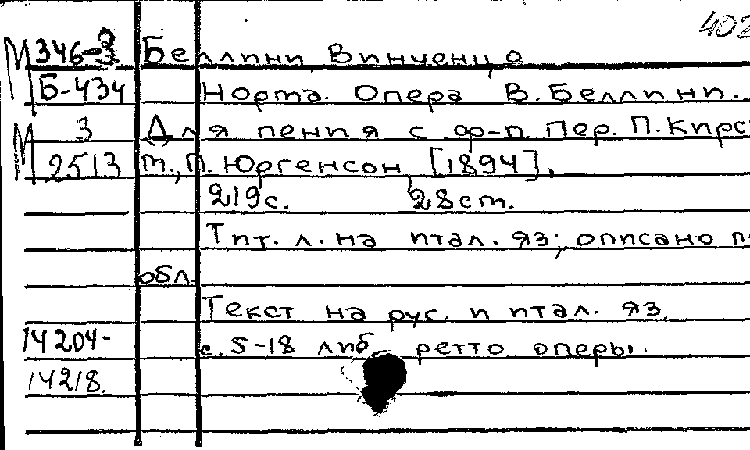 402
М 346-3 Беллини, Винченцо
Б-434 Норма. Опера В. Беллини.
М 3 Для пения с ф-п. Пер. П. Кирс
2513 М., П. Юргенсон, [1894].
219с. 28 ст.
Тит. л. на итал. яз; описано п
обл.
Текст на рус. и итал. яз.
14204- с. 5-18 либретто оперы.
14218.